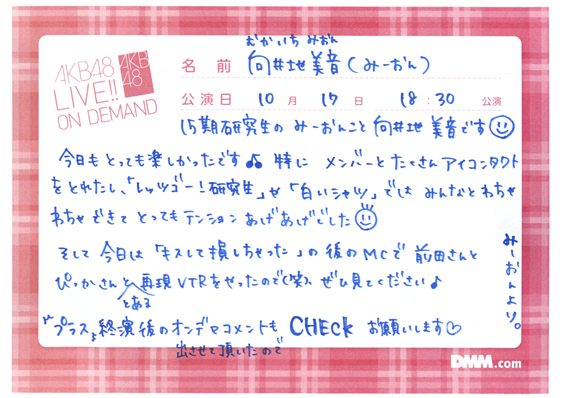 AKB48
LIVE!!
ON DEMAND
AKB
48
むかいち みおん
名前 向井地 美音 (みーおん)
公演日 10月 17日 18:30 公演
15期研究生の みーおんこと 向井地 美音です
今日もとっても楽しかったです♪ 特に メンバーと たくさん アイコンタクト
をとれたし、「レッツゴー!研究生」や「白いシャツ」では みんなとわちゃ
わちゃできて とってもテンション あげあげでした
そして 今日は「キスして損しちゃった」の後のMCで 前田さんと
ぴっかさんと とある 再現VTRをやったので(笑)、ぜひ見てください♪
プラス、終演後のオンデマコメントも 出させて頂いたので CHECK お願いします♡
みーおんより。
DMM.com